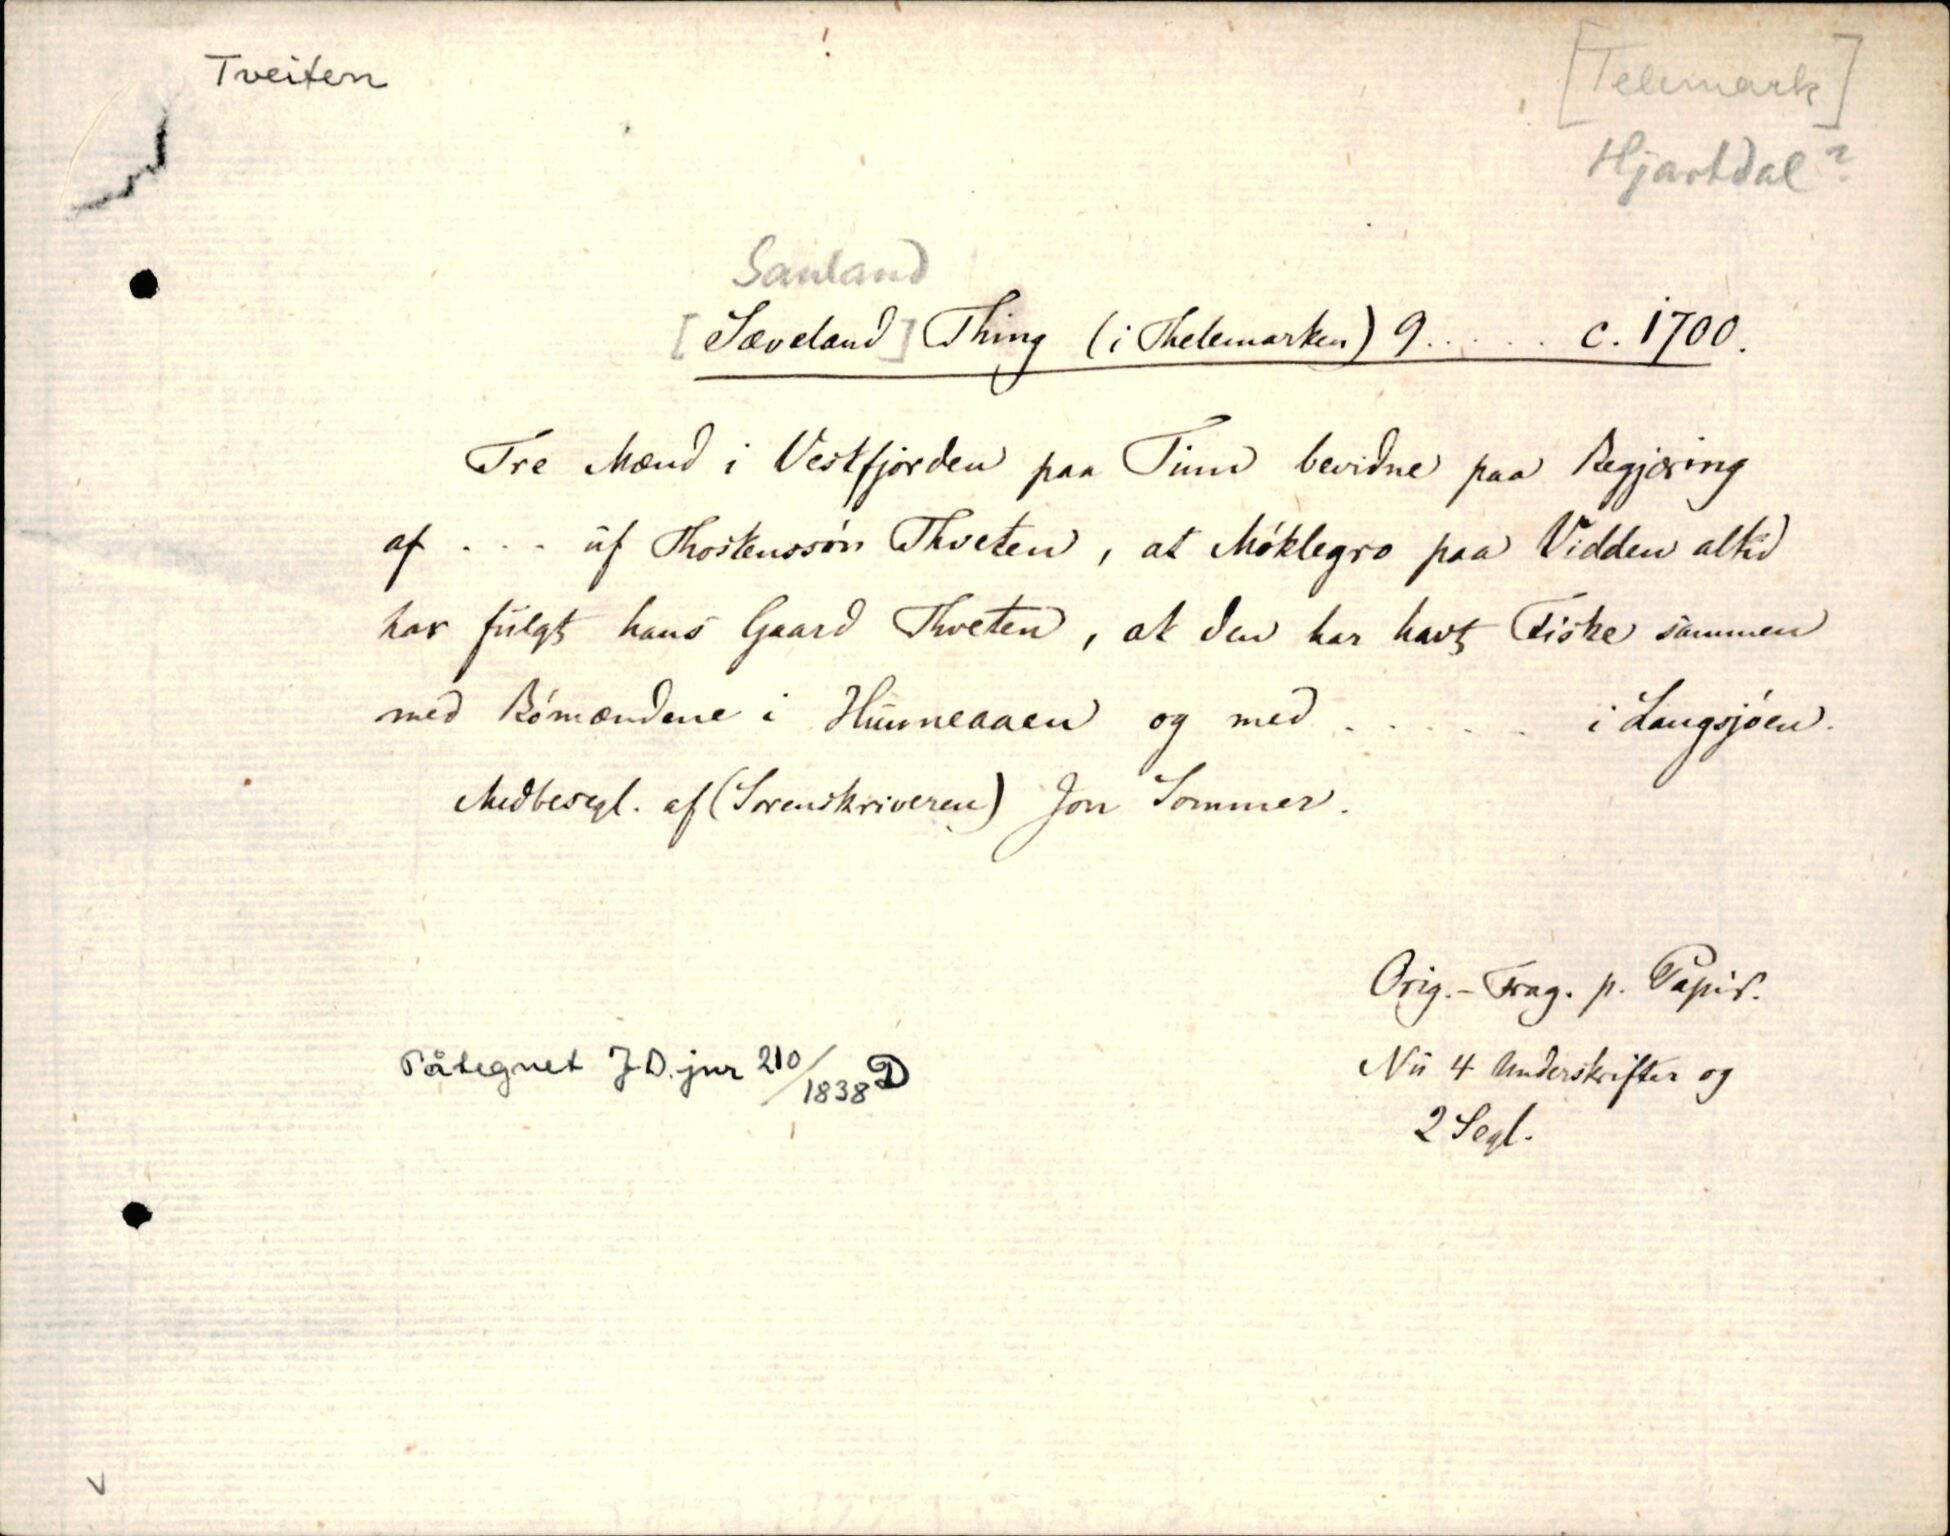 Tveiten
[Telemark]
Hjartdal?
Sauland
[Sæveland] Thing (i Thelemarken) 9..... c. 1700.
Tre Mænd i Vestfjorden paa Tinn bevidne paa Begjæring
af ... úf Thostenssøn Thveten, at Møklegro paa Vidden altid
har fulgt hans Gaard Thveten, at den har havt Fiske sammen
med Bømændene i Hunneaaen og med ..... i Langsjøen.
Medbesegl. af (Sorenskriveren) Jon Sommer.
Orig.-Frag. p. Papir.
Nu 4 Underskrifter og
2 Segl.
Påtegnet J.D. jnr 210/1838 D